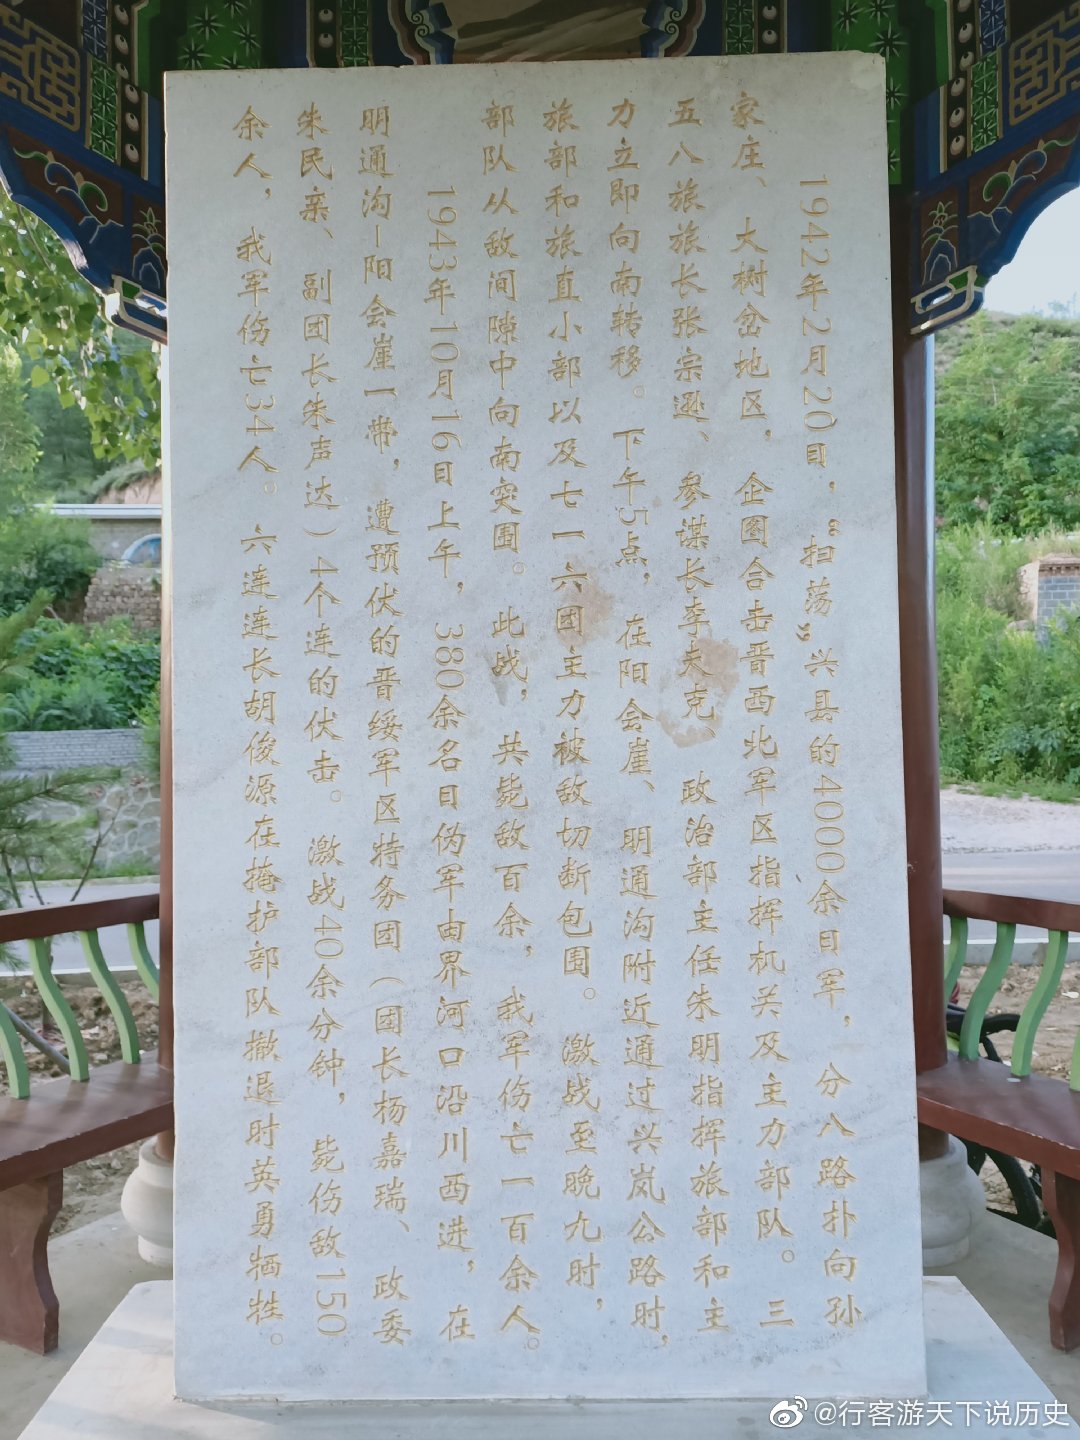 1942年2月20日，“扫荡”兴县的4000余日军，分八路扑向孙
家庄、大树岔地区，企图合击晋西北军区指挥机关及主力部队。三
五八旅旅长张宗逊、参谋长李夫克、政治部主任朱明指挥旅部和主
力立即向南转移。下午5点，在阳会崖、明通沟附近通过兴岚公路时，
旅部和旅直小部以及七一六团主力被敌切断包围。激战至晚九时，
部队从敌间隙中向南突围。此战，共毙敌百余，我军伤亡一百余人。
1943年10月16日上午，380余名日伪军由界河口沿川西进，在
明通沟—阳会崖一带，遭预伏的晋绥军区特务团（团长杨嘉瑞、政委
朱民亲、副团长朱声达）4个连的伏击。激战40余分钟，毙伤敌150
余人，我军伤亡34人。六连连长胡俊源在掩护部队撤退时英勇牺牲。
@行客游天下说历史